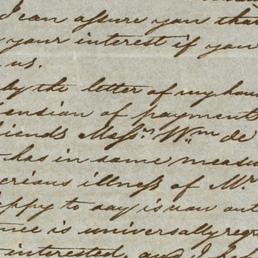 I can assure you that
your interest if you
us.
by the letter of my hou
pension of payment
friends Messrs Wm de
has in some measu
serious illness of Mr
appy to say is now out
nce is universally regr
interested, and I